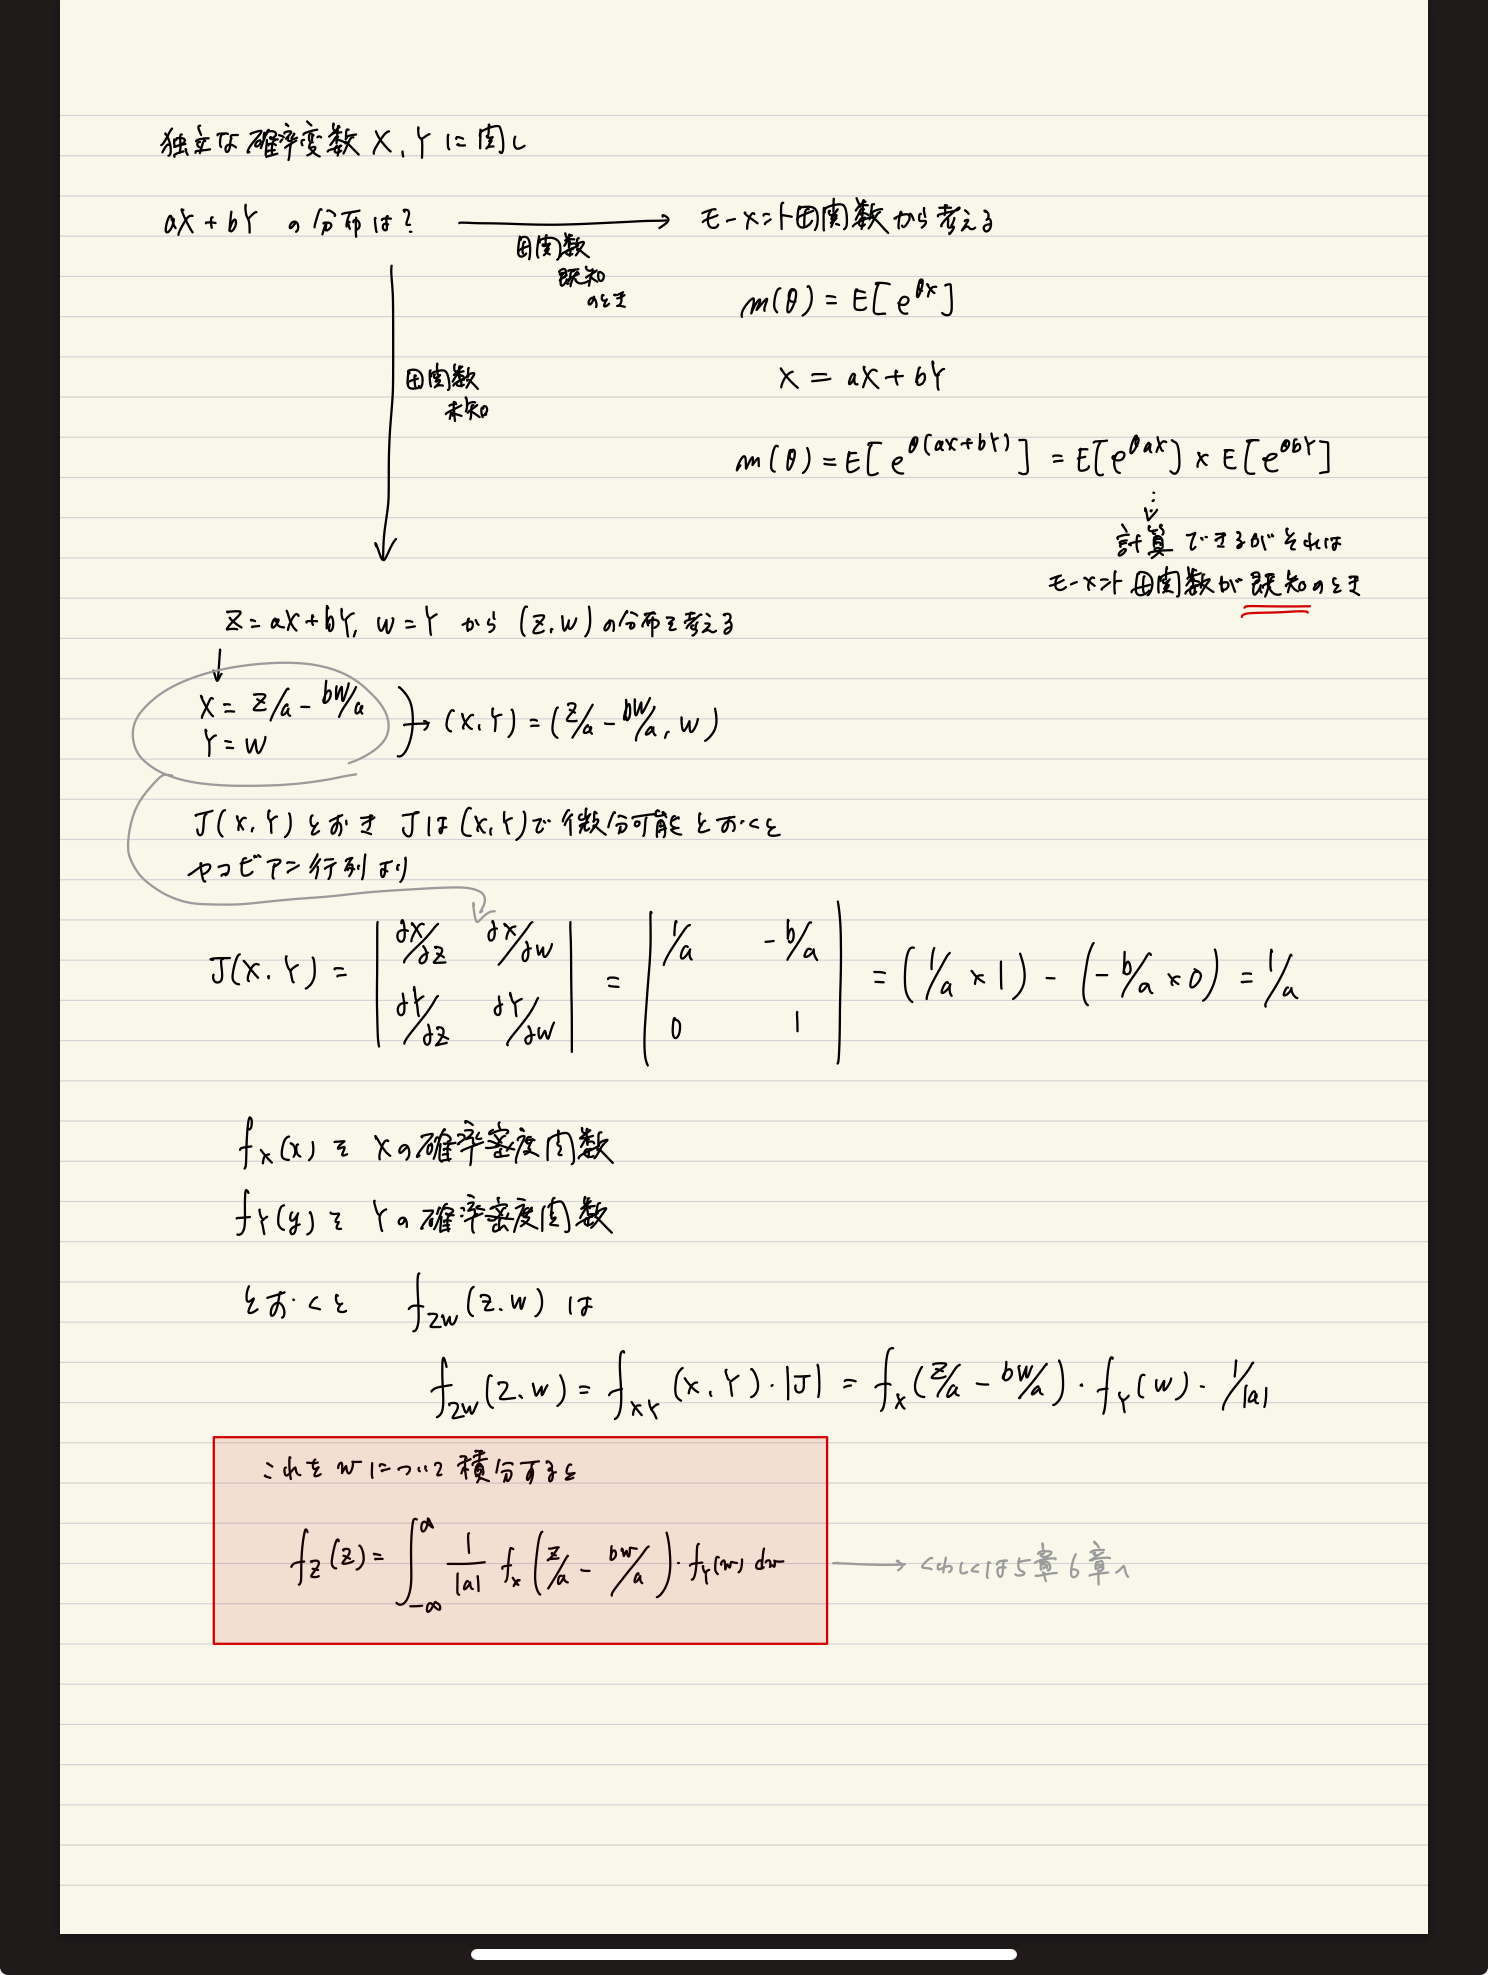 独立な確率変数 X, Y に関し
aX + bY の分布は?
母関数
既知
のとき
モーメント母関数から考える
m(θ) = E[e^{θX}]
X = aX + bY
母関数
未知
m(θ) = E[e^{θ(aX+bY)}] = E[e^{θaX}] × E[e^{θbY}]
計算できるがそれは
モーメント母関数が既知のとき
Z = aX + bY, W = Y から (Z, W) の分布を考える
X = Z/a - bW/a
Y = W
(X, Y) = (Z/a - bW/a, W)
J(X, Y) とおき Jは(X, Y)で微分可能とおくと
ヤコビアン行列より
J(X, Y) = | ∂X/∂Z ∂X/∂W | = | 1/a -b/a | = (1/a × 1) - (-b/a × 0) = 1/a
| ∂Y/∂Z ∂Y/∂W | | 0 1 |
f_X(x) を Xの確率密度関数
f_Y(y) を Yの確率密度関数
とおくと f_{ZW}(Z, W) は
f_{ZW}(Z, W) = f_{XY}(X, Y)・|J| = f_X(Z/a - bW/a)・f_Y(W)・1/|a|
これをwについて積分すると
f_Z(Z) = ∫_{-∞}^{∞} 1/|a| f_X(Z/a - bW/a)・f_Y(w) dw
くわしくは5章6章へ